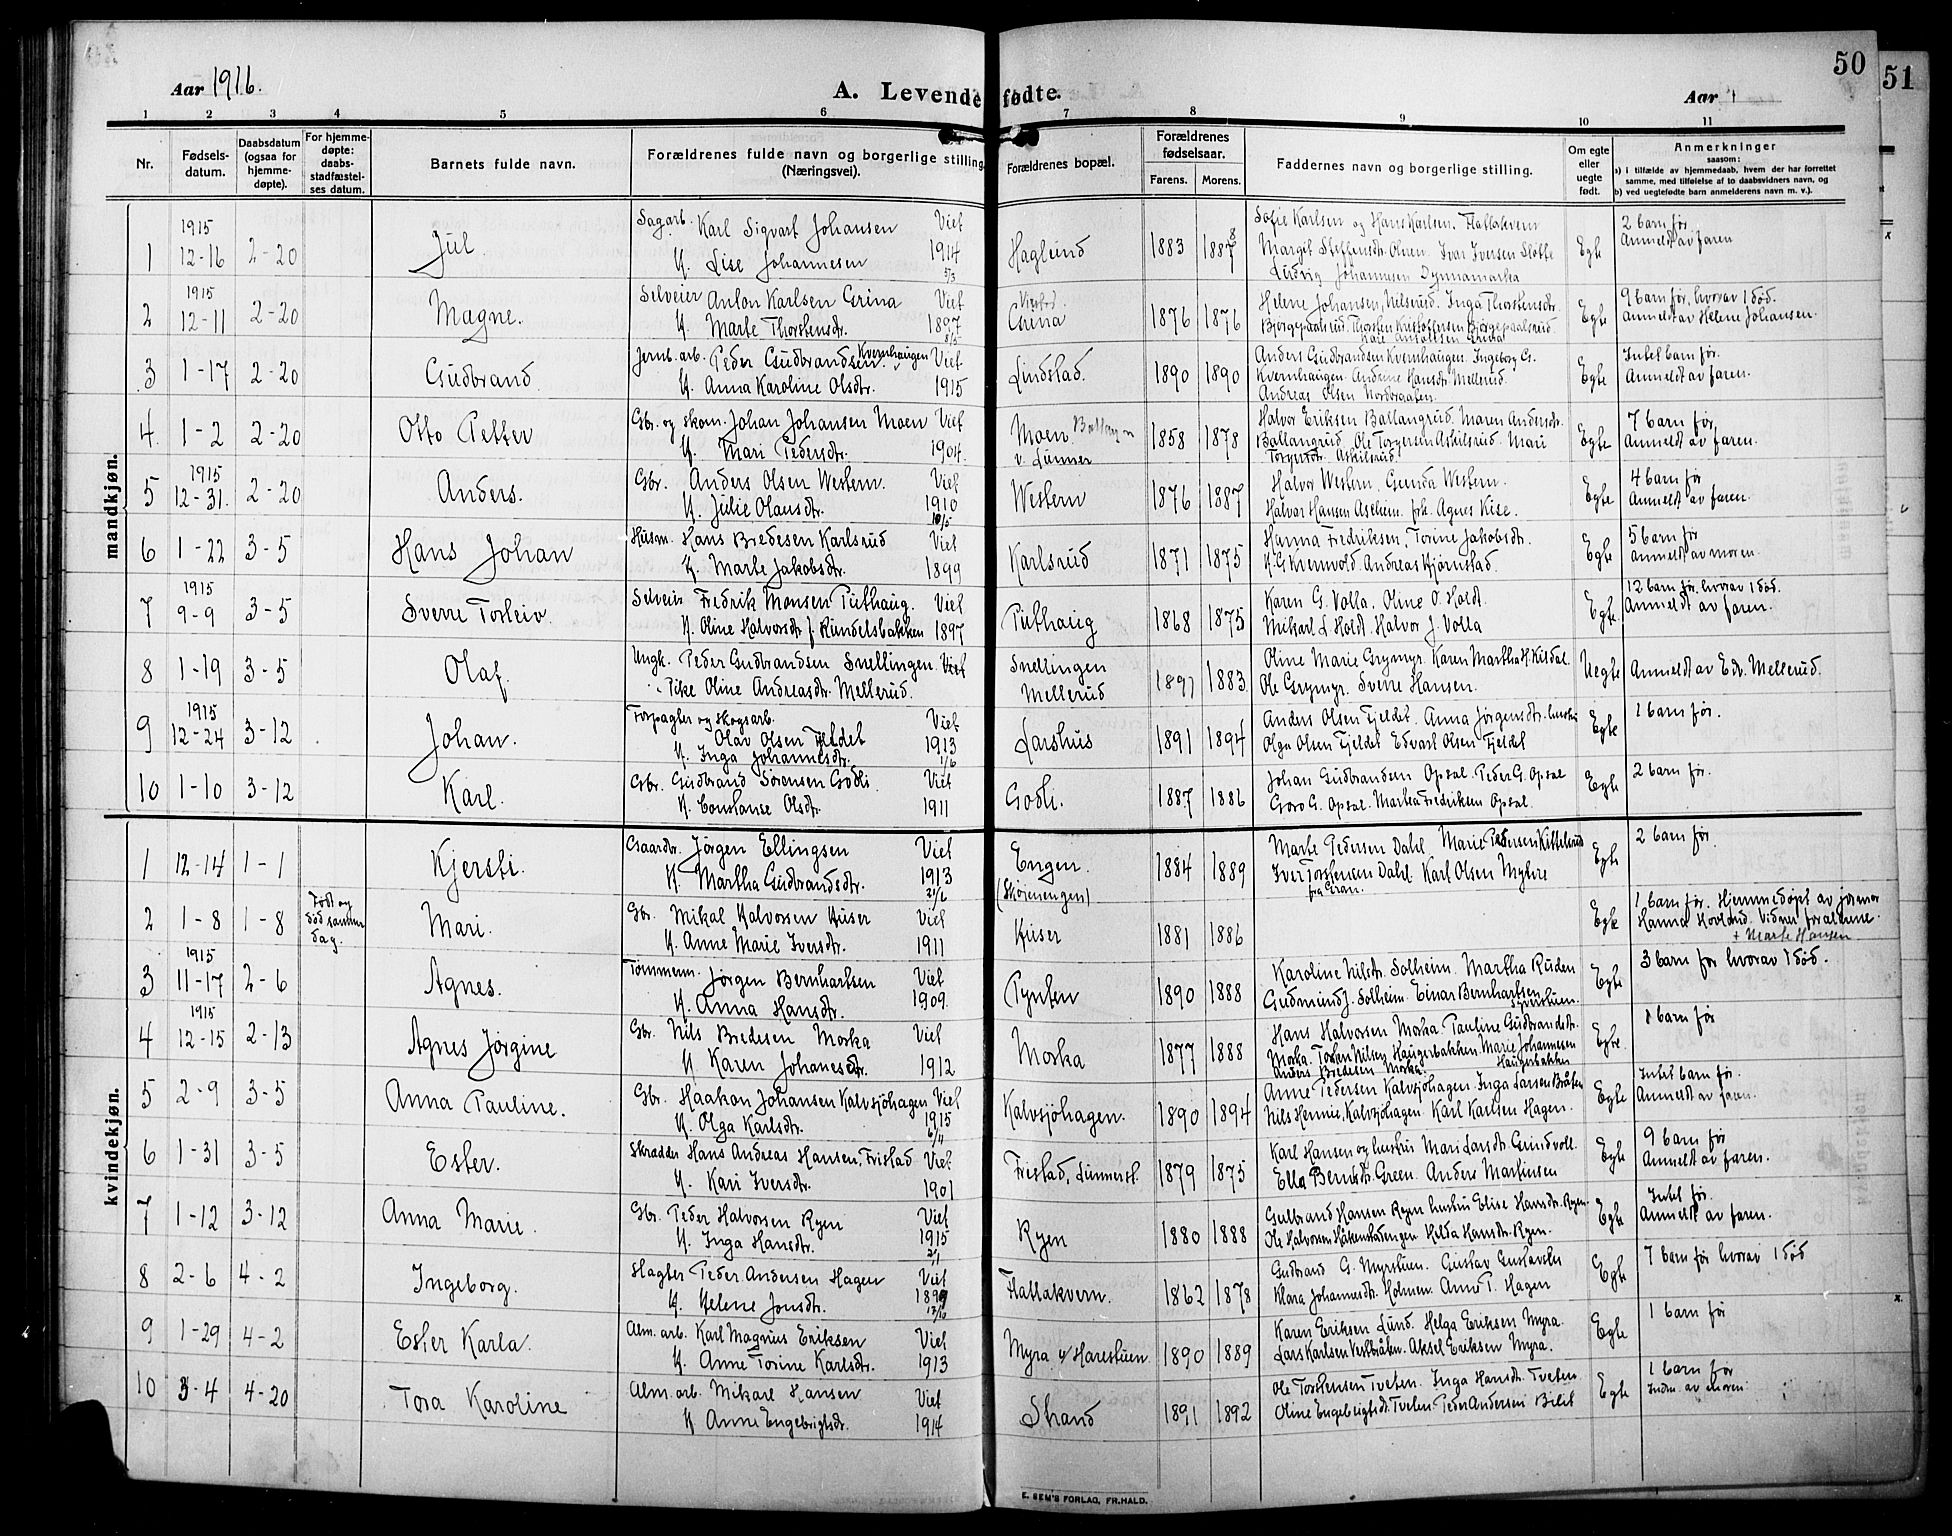 50
51
Aar 1916.
A. Levende fødte.
Aar 1
1 2 3 4 5 6 7 8 9 10 11
Nr.
Fødsels-
datum.
Daabsdatum
(ogsaa for
hjemme-
døpte).
For hjemme-
døpte:
daabs-
stadfæstel-
ses datum.
Barnets fulde navn.
Forældrenes fulde navn og borgerlige stilling
(Næringsvei).
Forældrenes bopæl.
Forældrenes
fødselsaar.
Farens. Morens.
Faddernes navn og borgerlige stilling.
Om egte
eller
uegte
født.
Anmerkninger
saasom:
a) i tilfælde av hjemmedaab, hvem der har forrettet
samme, med tilføielse af to daabsvidners navn, og
b) ved uegtefødte barn anmelderens navn m. v.).
mandkjøn.
1915
1 12-16 2-20 Jul. Sagarb. Karl Sigvart Johansen Viet
K. Lise Johannesen 1914 5/3
Haglund 1883 1887 8
Sofie Karlsen og Hans Karlsen, Flatlakvern
Margit Steffensdr. Olnen. Ivar Iversen Slötte
Ludvig Johannesen Dynnamarka
Egte 2 barn før
Anmeldt av faren
1915
2 12-11 2-20 Magne. Selveier Anton Karlsen Grina Viet
K. Marte Thorstensdr. 1897 8/5
Grina 1876 1876
Helene Johansen, Nilsrud. Inga Thorstensdr.
Bjørgepaalsrud, Thorsten Kristoffersen Bjørgepaalsrud
Egte 9 barn før, hvorav 1 død.
Anmeldt av Helene Johansen.
3 1-17 2-20 Gudbrand. Jernb. arb. Peder Gudbrandsen Kvernhaugen Viet
K. Anna Karoline Olsdtr. 1915
Lindstad. 1890 1890
Anders Gudbrandsen Kvernhaugen. Ingeborg G.
Kvernhaugen. Andrine Hansdtr. Mellerud.
Andreas Olsen Nordregaten.
Egte Intet barn før.
Anmeldt av faren.
4 1-2 2-20 Otto Petter Gbr. og skom. Johan Johansen Moen Viet
K. Mari Pedersdtr. 1904.
Moen
v. Lunner 1858 1878
Halvor Eriksen Ballangrud. Maren Andersdtr.
Ballangrud. Ole Torgersen Askilsrud. Mari
Torgersdtr. Askilsrud.
Egte 7 barn før
Anmeldt av faren.
1915
5 12-31. 2-20 Anders. Gbr. Anders Olsen Western. Viet
K. Julie Olausdtr. 1910 10/5
Western 1876 1887
Halvor Western, Gunda Western.
Halvor Hansen Aslheim. frk. Agnes Kise.
Egte 4 barn før
Anmeldt av faren.
6 1-22 3-5 Hans Johan Husm. Hans Bredesen Karlsrud Viet
K. Marte Jakobsdtr. 1899
Karlsrud 1871 1875
Hanna Fredriksen, Torine Jakobsdtr.
Andreas Kjørnstad.
Egte 5 barn før
Anmeldt av moren.
1915
7 9-9 3-5 Sverre Torleiv. Selveier Fredrik Monsen Puthaug. Viet
K. Oline Halvorsdtr. f. Rundelsbakken 1897
Puthaug 1868 1875
Karen G. Volla. Oline O. Holdt.
Mikael L Holdt. Halvor J. Volla
Egte 12 barn før, hvorav 1 død.
Anmeldt av faren.
8 1-19 3-5 Olaf. Ungk. Peder Gudbrandsen Snellingen. Viet
Pike Oline Andreasdtr. Mellerud.
Snellingen
Mellerud 1891 1883.
Oline Marie Grymyr. Karen Martha H. Kildal.
Ole Grymyr. Sverre Hansen.
Uegte Anmeldt av Edv. Mellerud.
1915
9 12-24 3-12 Johan. Forpagter og skogsarb. Viet
Olav Olsen Fjeldet 1913
K. Inga Johannesdtr. 1/6
Larshus 1891 1894
Anders Olsen Fjeldet. Anna Jørgensdtr.
Olga Olsen Fjeldet Edvart Olsen Fjeldet
Egte 1 barn før.
10 1-10 3-12 Karl. Gbr. Gudbrand Sørensen Godli. Viet
K. Constanse Olsdtr. 1911
Godli. 1887 1886
Johan Gudbrandsen Opsal. Peder G. Opsal
Goro G. Opsal. Martha Fredriksen Opsal.
Egte 2 barn før.
kvindekjøn.
1 12-14 1-1 Kjersti. Gaardbr. Jørgen Ellingsen Viet
K. Martha Gudbrandsdtr. 1913 21/6
Engen.
(Skøienengen) 1884 1889
Marte Pedersen Dahl. Marie Pedersen Kittelsrud
Iver Torstensen Dahl. Karl Olsen Myhre
fra Gran.
Egte 2 barn før.
2 1-8 1-8 Født og
død samme
dag. Mari. Gbr. Mikal Halvorsen Huser Viet
K. Anne Marie Iversdtr. 1911
Huser 1881 1886
Egte 1 barn før. Hjemmedøpt av jormor
Hanna Hovland. Vidner forældrene.
+ Marte Hansen
1915
3 11-17 2-6 Agnes. Tømmerm. Jørgen Bernhartsen Viet
K. Anna Hansdtr. 1909.
Tynten 1890 1888
Karoline Nilsdtr. Solheim. Martha Ruden
Gudmund J. Solheim. Einar Bernhartsen
Egte 3 barn før hvorav 1 død.
1915
4 12-15 2-13 Agnes Jørgine Gbr. Nils Bredesen Morka Viet
K. Karen Johanesdtr. 1912
Morka 1877 1888
Hans Halvorsen Morka. Pauline Gudbrandsdtr.
Morka. Torsten Nilsen Haugerbakken. Marie Johannesen
Anders Bredesen Morka. Haugerbakken
Egte. 1 barn før
5 2-9 3-5 Anna Pauline. Gbr. Haakon Johansen Kalvsjöhagen Viet
K. Olga Karlsdtr. 1915 6/11
Kalvsjöhagen. 1890 1894
Anne Pedersen Kalvsjöhagen. Inga Larsen Bråten
Nils Hennie, Kalvsjöhagen. Karl Karlsen Hagen.
Egte Intet barn før.
Anmeldt av faren.
6 1-31 3-5 Ester. Skrædder Hans Andreas Hansen, Fristad Viet
K. Kari Iversdtr. 1901
Fristad, Lunnerst. 1879 1875
Karl Hansen og hustru Mari Larsdtr. Grindvoll.
Ella Berntsdtr. Green. Anders Martinsen
Egte 9 barn før
Anmeldt av faren.
7 1-12 3-12 Anna Marie. Gbr. Peder Halvorsen Ryen Viet
K. Inga Hansdtr. 1915 2/1
Ryen 1880 1888
Gulbrand Hansen Ryen hustru Elise Hansdtr. Ryen.
Ole Halvorsen Håkenstadengen Helda Hansdtr. Ryen.
Egte Intet før.
Anmeldt av faren.
8 2-6 4-2 Ingeborg. Hagter Peder Andersen Hagen Viet
K. Helene Jonsdtr. 1899 13/10
Flatlakvern. 1862 1878
Gudbrand G. Myrstuen. Gustav Gustavsen
Klara Johannesdtr. Holmen. Anne P. Hagen
Egte 7 barn før hvorav 1 død
9 1-29 4-2 Ester Karla. Alm. arb. Karl Magnus Eriksen Viet
K. Anne Torine Karlsdtr. 1913
Myra v/ Harestuen. 1890 1889
Karen Eriksen Lund. Helga Eriksen Myra.
Lars Karlsen Vestbråten. Aksel Eriksen Myra.
Egte 1 barn før
10 3-4 4-20 Tora Karoline Alm. arb. Mikael Hansen Viet
K Anne Engebrigtsdtr. 1914
Strand 1891 1892
Ole Torstensen Tveten. Inga Hansdtr. Tveten.
Oline Engebrigtsdtr. Tveten. Peder Andersen Bilit
Egte 1 barn før
Indm. av moren.
E. SEM'S FORLAG, FR.HALD.